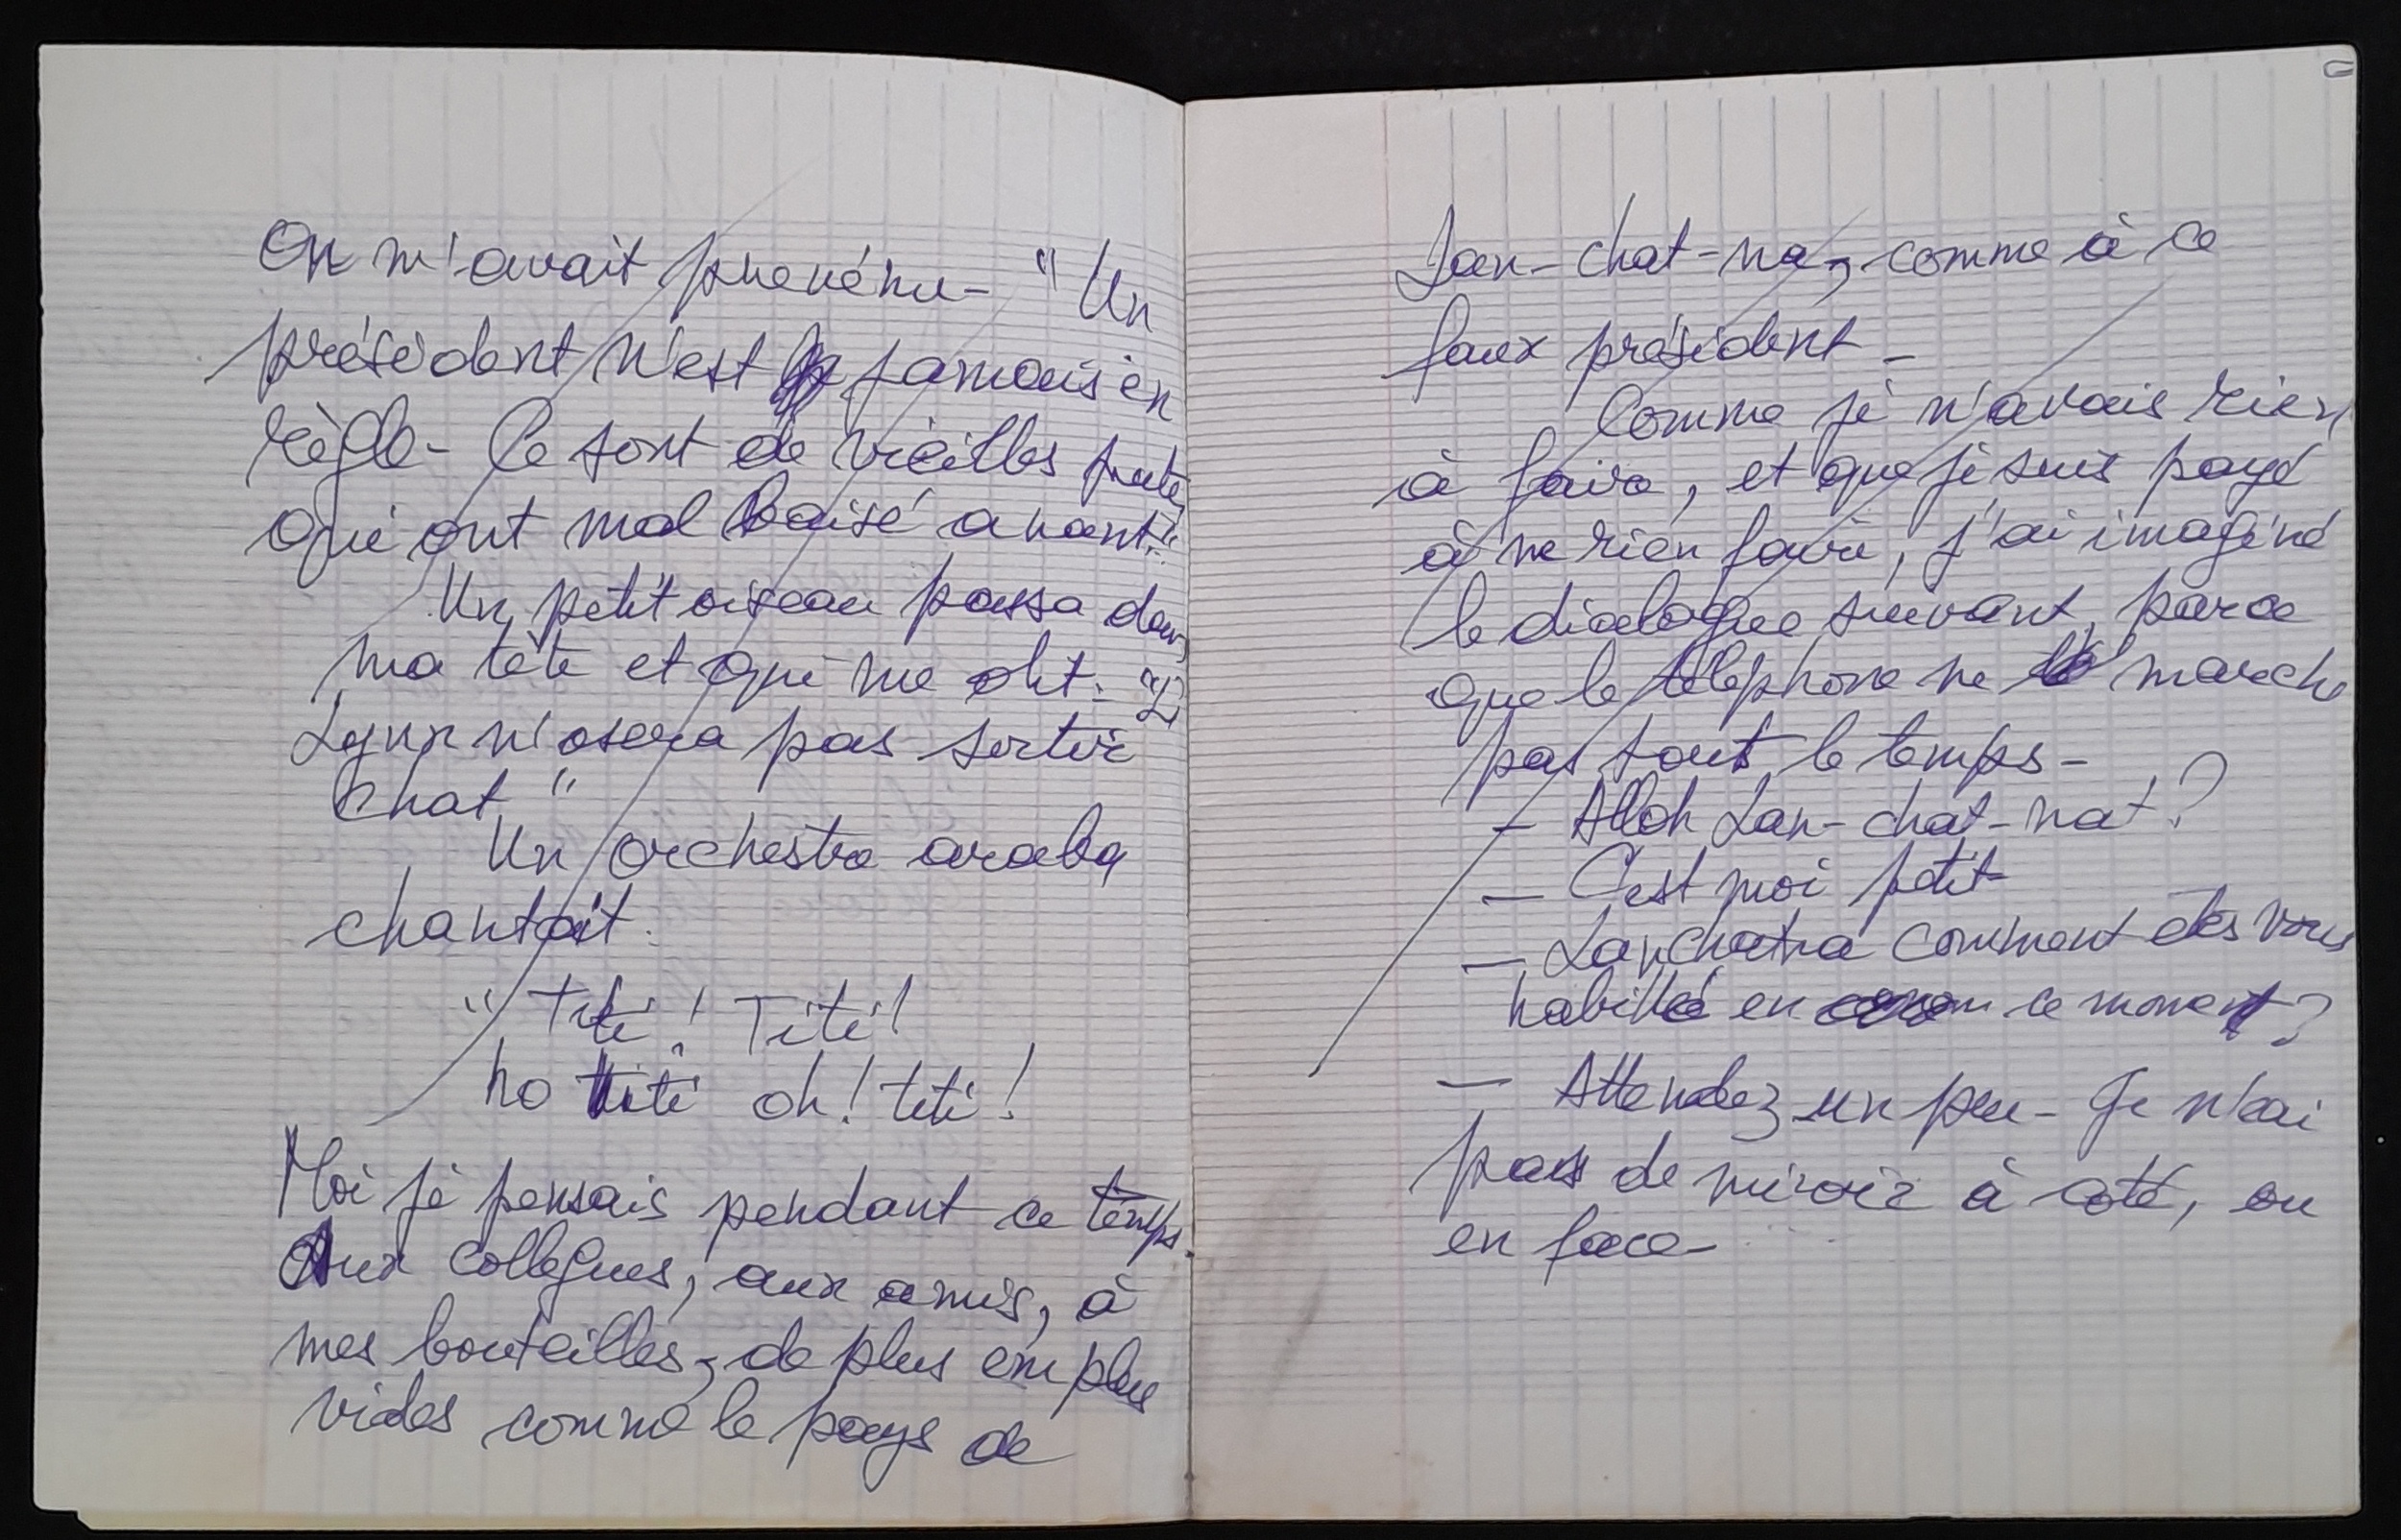 On m'avait prévénu - "Un
président n'est jamais en
règle - Ce sont de vieilles putes
qui ont mal baisé avant."
Un petit oiseau passa dans
ma tête et qui me dit. "Le
Lynx n'osera pas sortir
chat"
Un orchestre arabe
chantait.
"Titi! Titi!
ho titi oh! titi!
Moi je pensais pendant ce temps.
Aux collègues, aux amis, à
mes bouteilles, de plus en plus
vides comme le pays de
Lan-chat-na, comme à ce
faux président -
Comme je n'avais rien
à faire, et que je suis payé
à ne rien faire, j'ai imaginé
le dialogue suivant, parce
que le téléphone ne marche
pas tout le temps -
- Alloh Lan-chat-nat?
- C'est moi petit
- Lanchatna comment êtes vous
habillé en ce moment?
- Attendez un peu - Je n'ai
pas de miroir à coté, ou
en face -